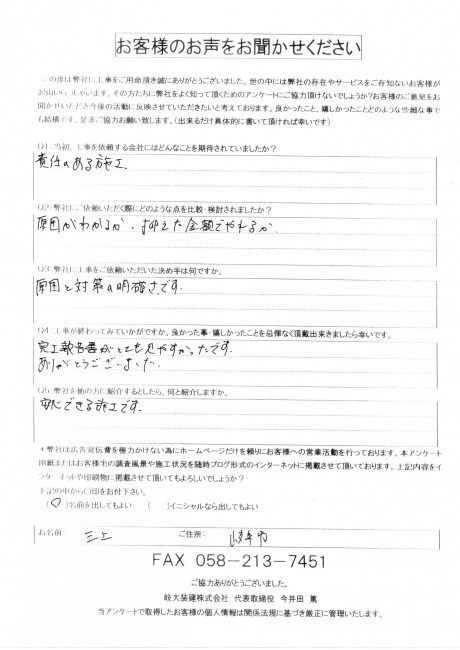 お客様のお声をお聞かせください
この度は弊社に工事をご用命頂き誠にありがとうございました。世の中には弊社の存在やサービスをご存知ないお客様が
沢山いらっしゃいます。その方たちに弊社をよく知って頂くためのアンケートにご協力頂けないでしょうか?お客様のご意見をお
聞かせいただき今後の活動に反映させていただきたいと考えております。良かったこと、嬉しかったことどのような些細な事で
も結構です。是非ご協力お願い致します。(出来るだけ具体的に書いて頂ければ幸いです)
Q1:当初、工事を依頼する会社にはどんなことを期待されていましたか?
責任のある施工.
Q2:弊社にご依頼いただく際にどのような点を比較・検討されましたか?
原因がわかるか、抑えた金額でやれるか.
Q3:弊社に工事をご依頼いただいた決め手は何ですか。
原因と対策の明確さです.
Q4:工事が終わってみていかがですか。良かった事・嬉しかったことを忌憚なく頂戴出来きましたら幸いです。
完工報告書がとても見やすかったです.
ありがとうございました.
Q5:弊社を他の方に紹介するとしたら、何と紹介しますか。
安心できる施工です.
*弊社は広告宣伝費を極力かけない為にホームページだけを頼りにお客様への営業活動を行っております。本アンケート
用紙またはお客様宅の調査風景や施工状況を随時ブログ形式のインターネットに掲載させて頂いております。上記内容をイ
ンターネットや印刷物に掲載させて頂いてもよろしいでしょうか?
下記の中から〇印をお付下さい。
(〇)名前を出してもよい ( )イニシャルなら出してもよい
お名前: 三上 ご住所: 岐阜市
FAX 058-213-7451
ご協力ありがとうございました。
岐大装建株式会社 代表取締役 今井田 篤
当アンケートで取得したお客様の個人情報は関係法規に基づき厳正に管理いたします。